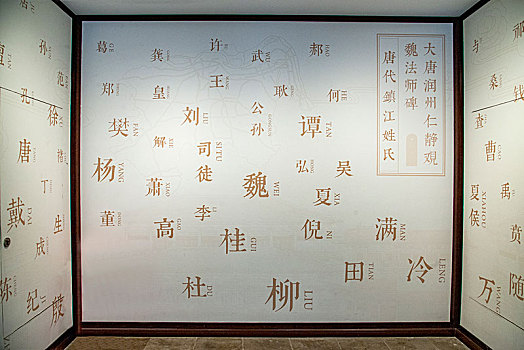 大唐润州仁静观
魏法师碑
唐代镇江姓氏
葛 GE
龚
许
武 WU
郝 HAO
郑
皇
王
耿
何 HE
樊 FAN
解 XIE
刘 LIU
公孙
谭 TAN
杨 YANG
萧 XIAO
司徒 SITU
魏 WEI
弘
吴
夏 XIA
董
高 GAO
李 LI
桂 GUI
倪 NI
满 MAN
杜 DU
柳 LIU
田 TIAN
冷 LENG
孙
范
孔
徐
唐
褚
丁
戴 DAI
生
成
陈
纪
殷
祁
桑
钱
查
曹
禹
夏侯 XIAHOU
万 WANG
随